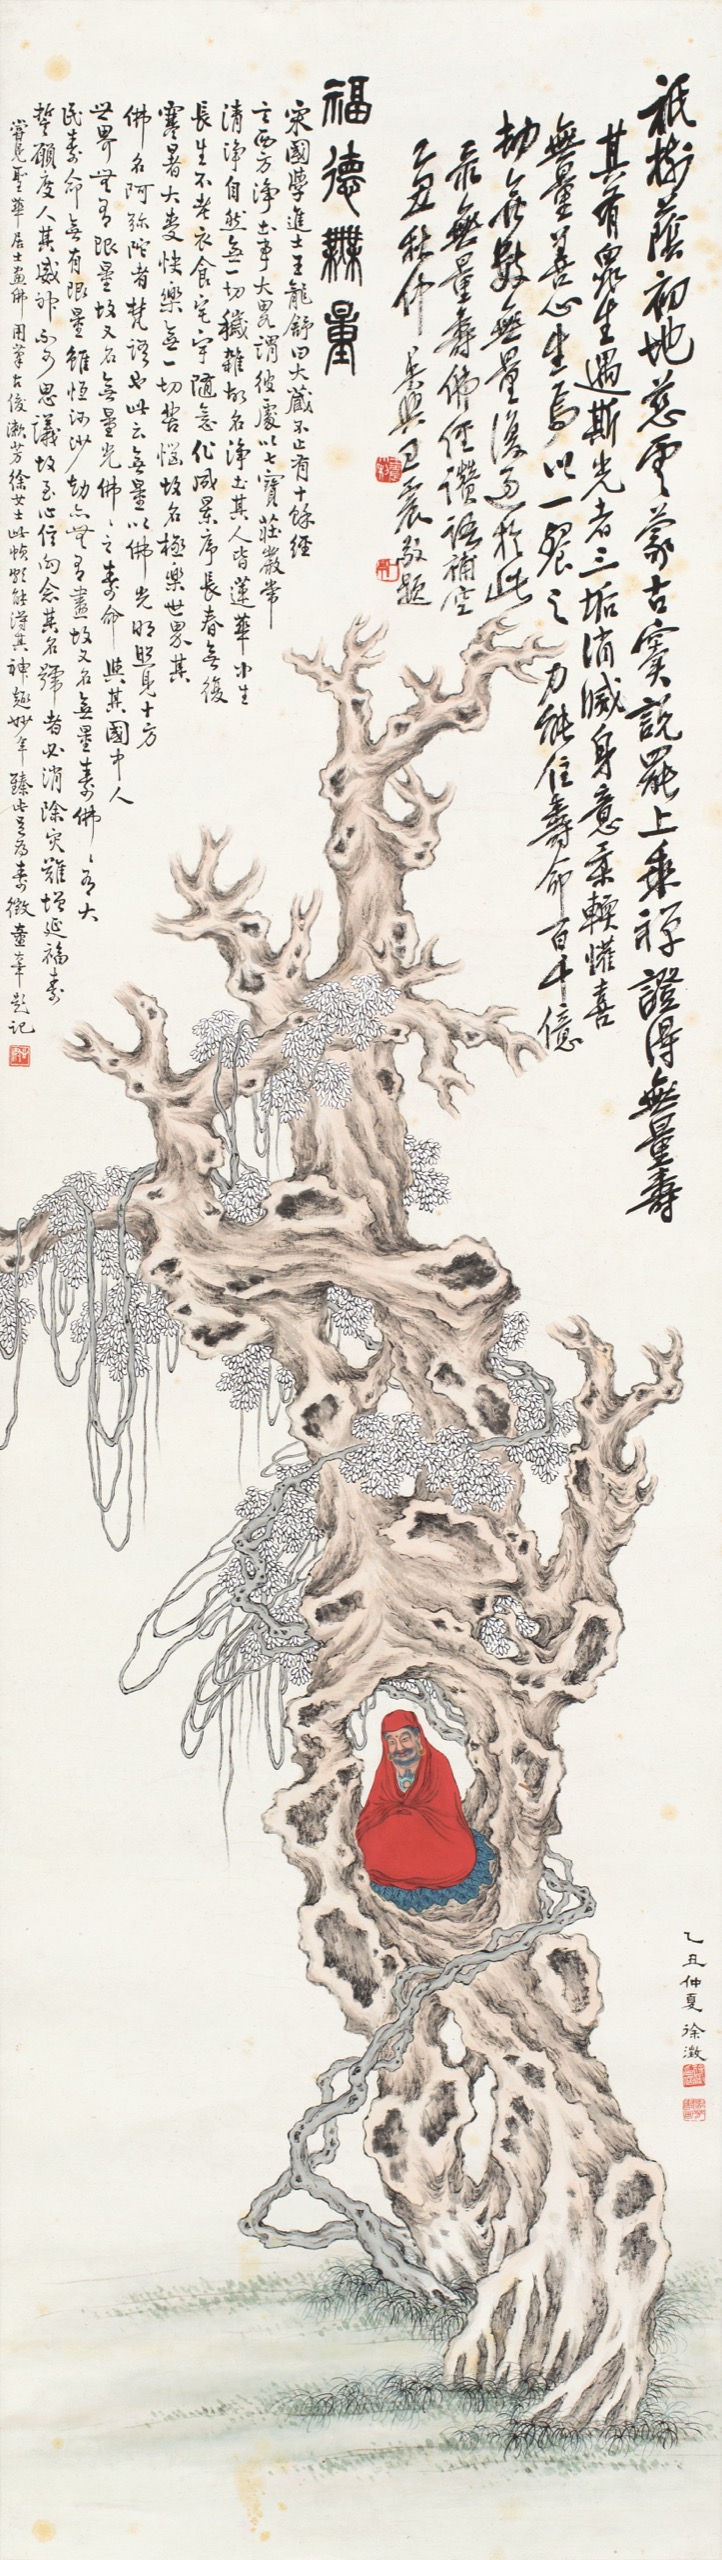 祇樹蔭初地慈雲蒙古寞說罷上乘禪證得無量壽
其有眾生遇斯光者三垢消滅身意柔軟懽喜
無量善心生焉以一飡之力能住壽命百千億
劫無數無量復過於此
录無量壽佛經讚語補空
乙丑秋仲吳興王震敬題
福德無量
宋國學進士王龍舒曰大藏不止有十餘經
言西方淨土事大畧謂彼處以七寶莊嚴常
清淨自然無一切穢雜故名淨土其人皆蓮華中生
長生不老衣食宅宇隨意化成景序長春無復
寒暑大受快樂無一切苦惱故名極樂世界其
佛名阿弥陀者梵語也此云無量以佛光明照見十方
世界無有限量故又名無量光佛佛之壽命與其國中人
民壽命無有限量雖恒河沙劫亦無有盡故又名無量壽佛佛有大
誓願度人其威神不可思議故至心信向念其名號者必消除灾難增延福壽
嘗見聖華居士畫佛用筆古俊漱芳徐女士此幀頗能得其神趣妙年臻此是為壽徵童華題記
乙丑仲夏徐漱